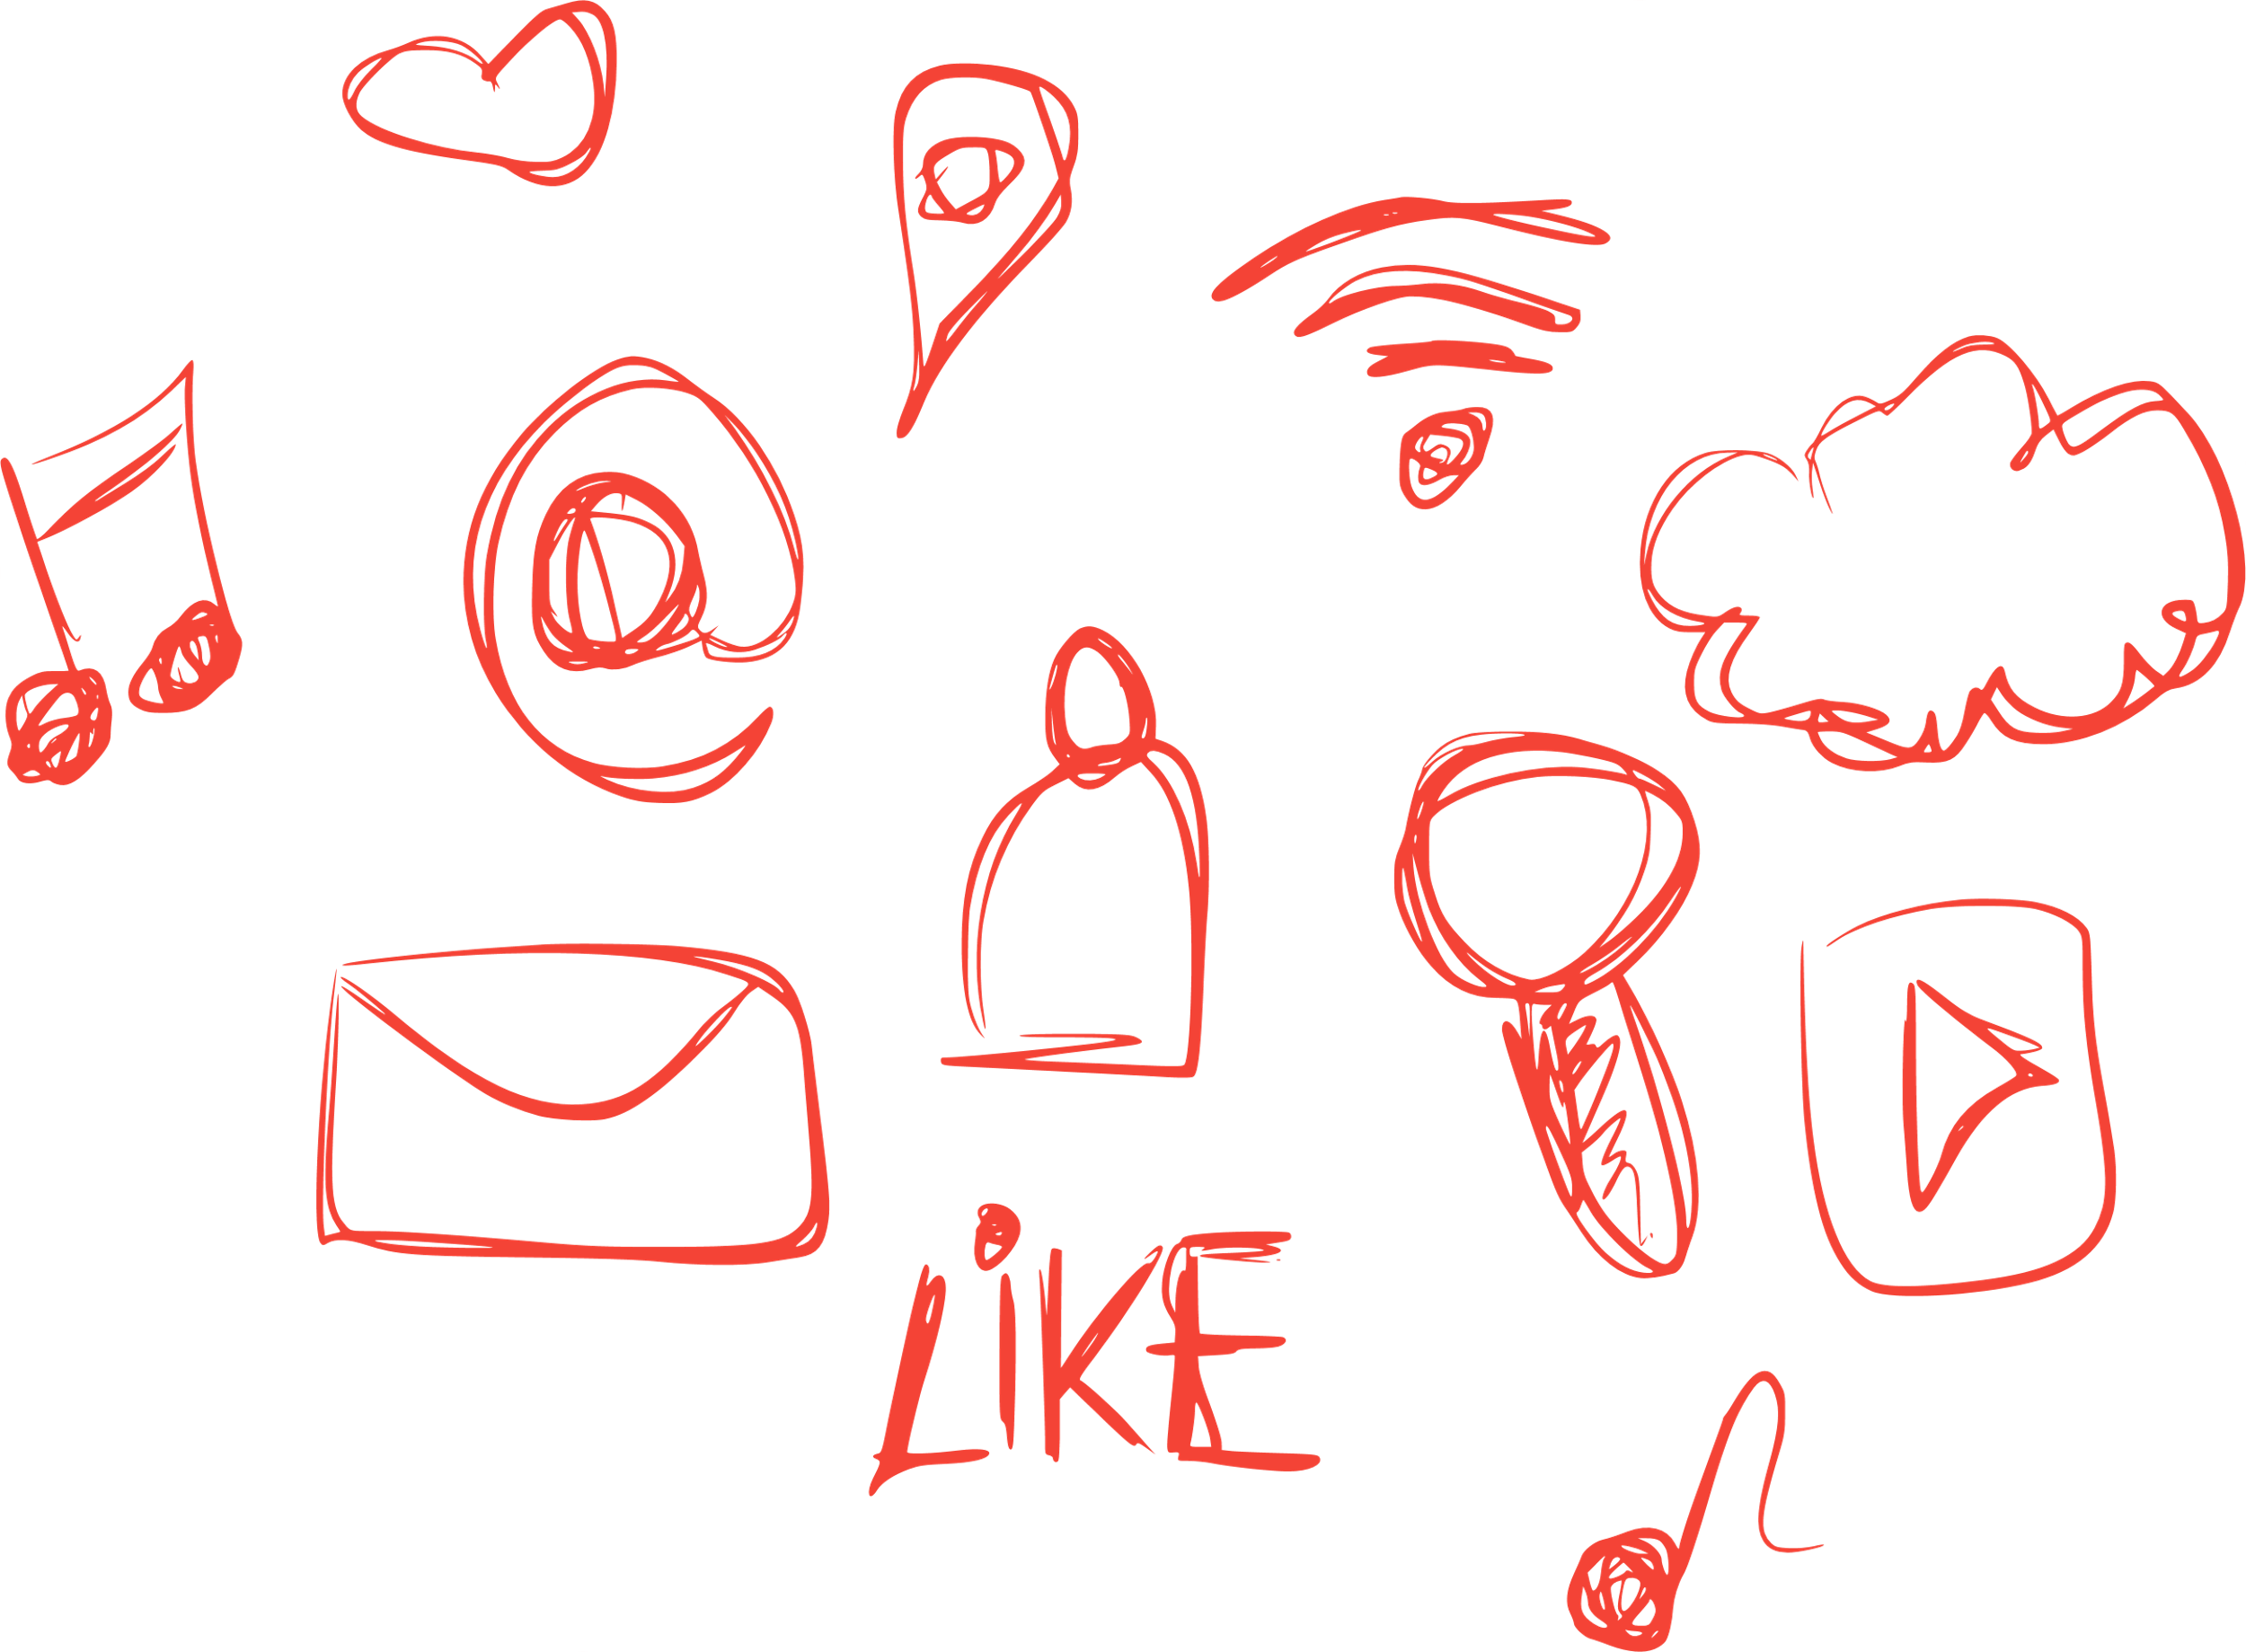 @
LIKE